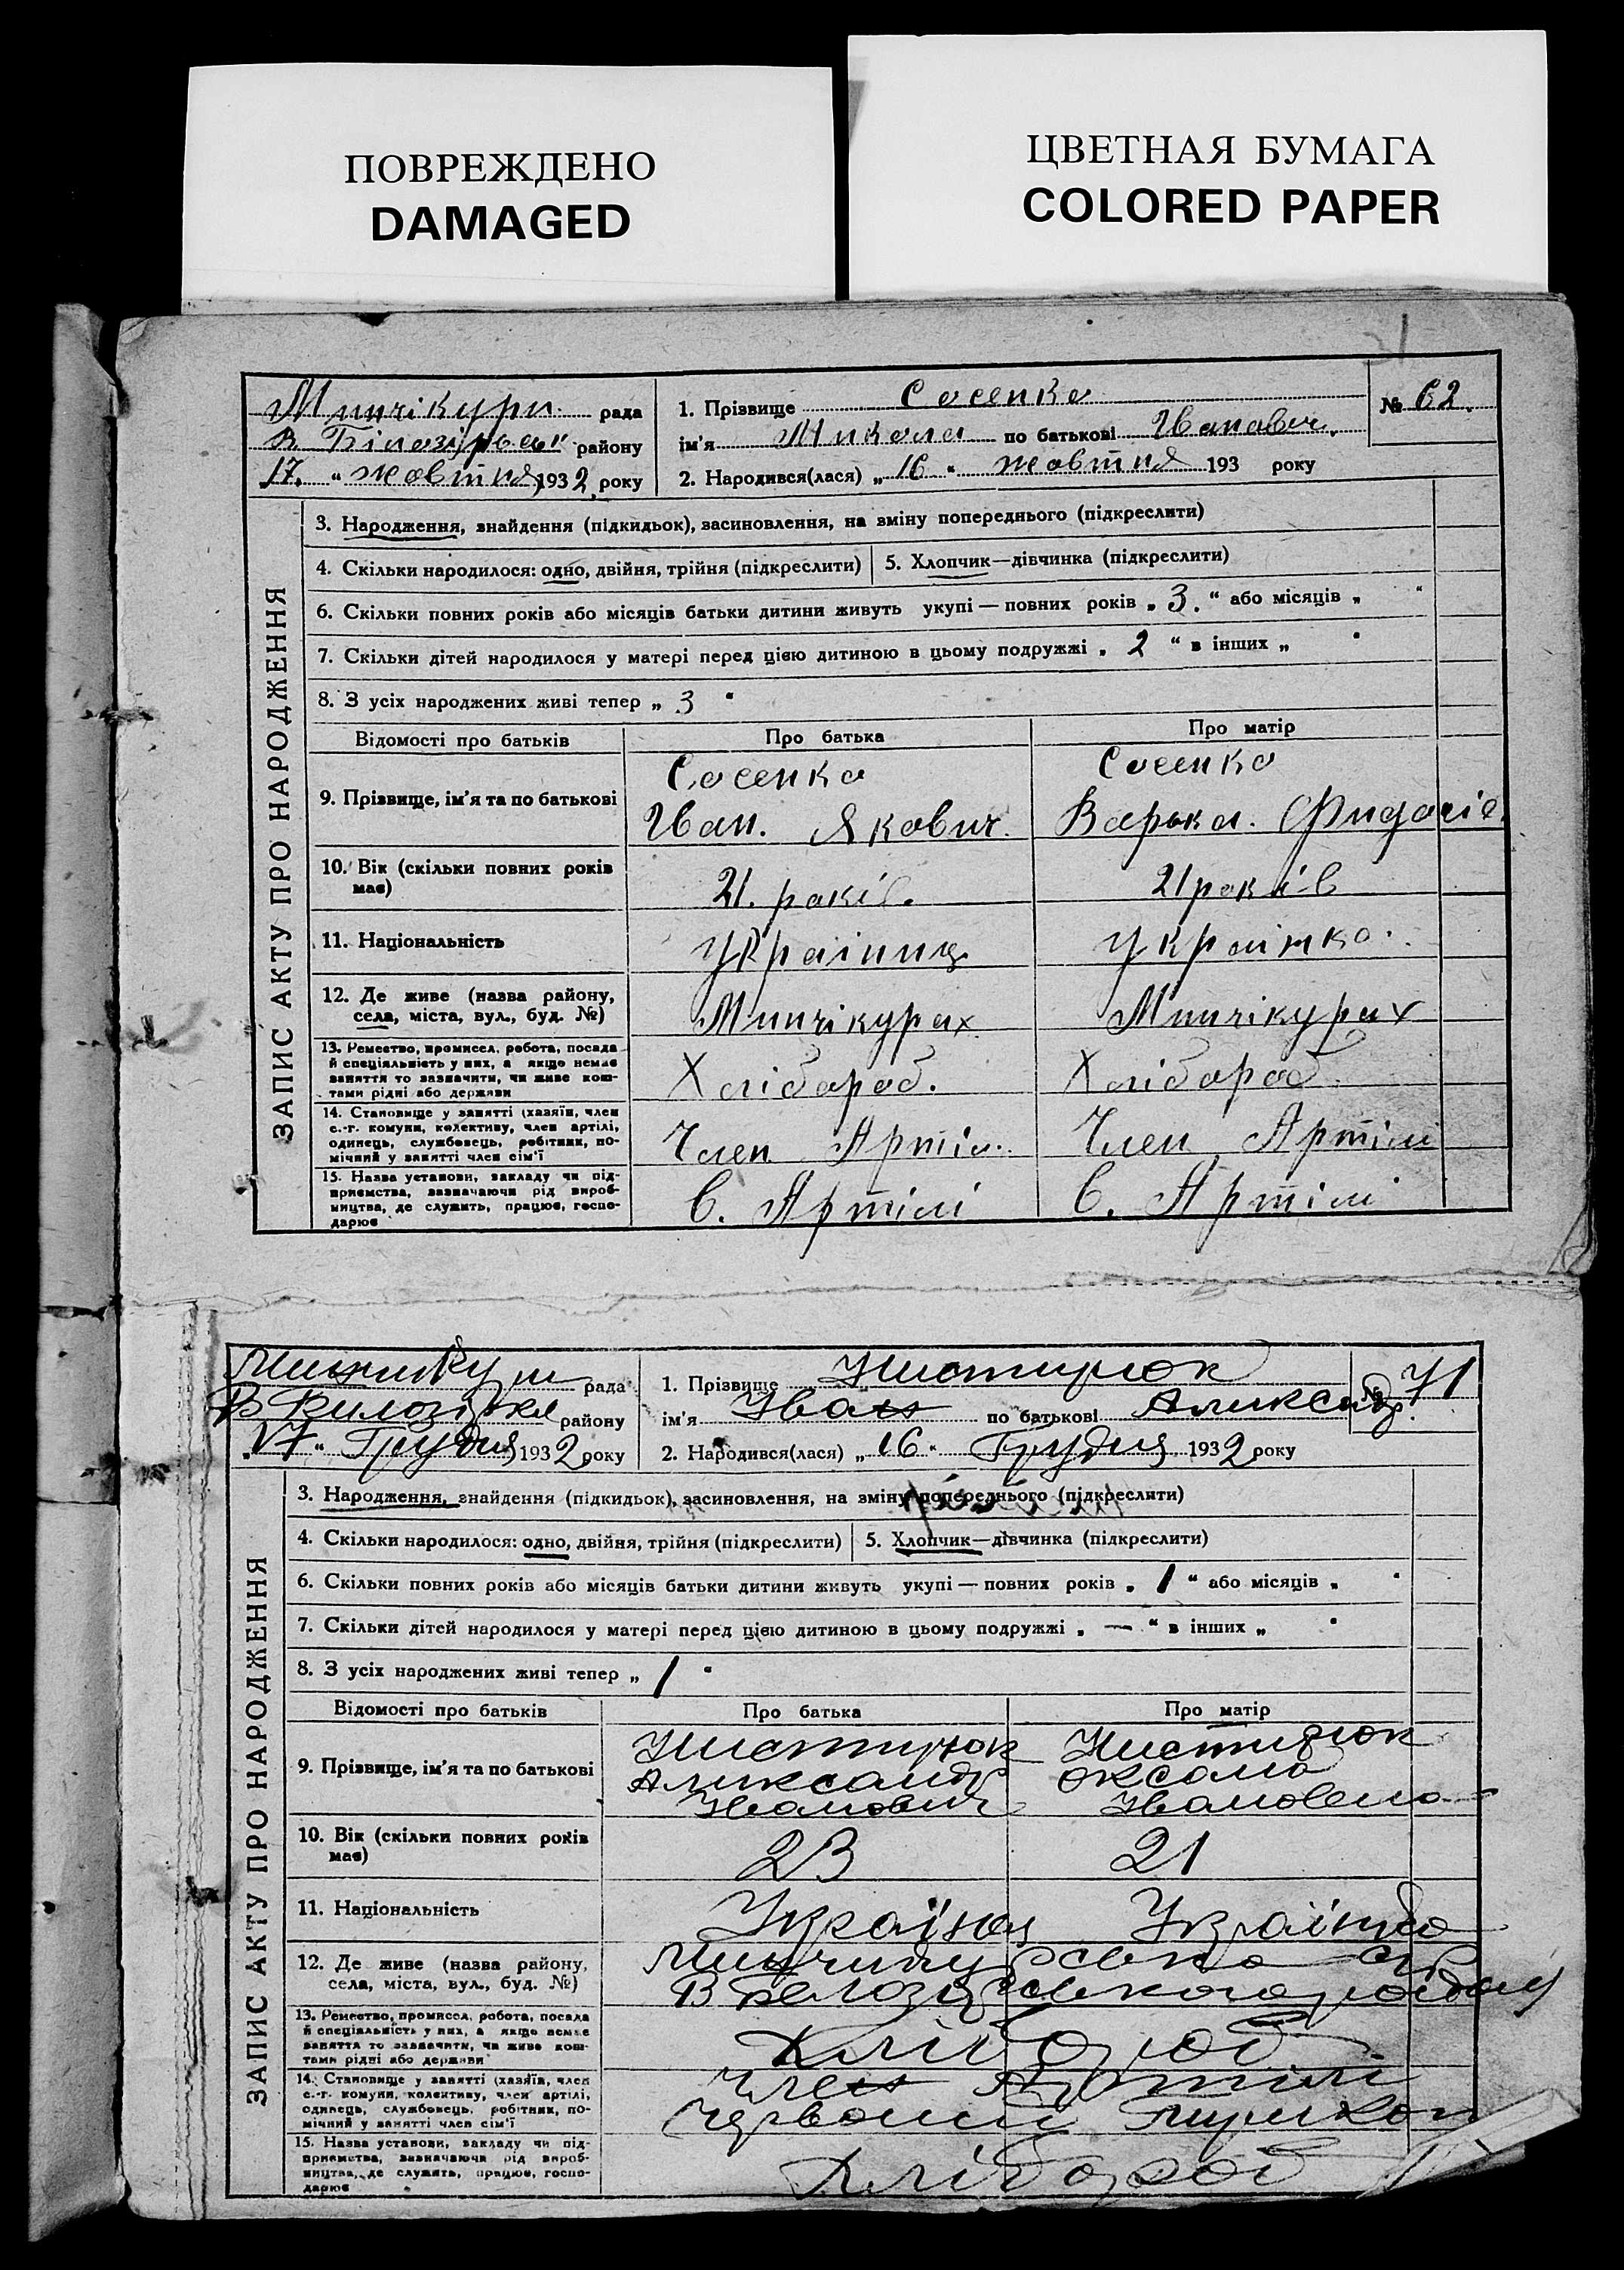 ПОВРЕЖДЕНО
DAMAGED
ЦВЕТНАЯ БУМАГА
COLORED PAPER
Минчікури рада
В. Білозірськ" району
17. "жовтня 1932 року
1. Прізвище Сосенко
ім'я Микола по батькові Іванович.
2. Народився(лася) „16" жовтня 193 року
№ 62.
ЗАПИС АКТУ ПРО НАРОДЖЕННЯ
3. Народження, знайдення (підкидьок), засиновлення, на зміну попереднього (підкреслити)
4. Скільки народилося: одно, двійня, трійня (підкреслити)
5. Хлопчик—дівчинка (підкреслити)
6. Скільки повних років або місяців батьки дитини живуть укупі — повних років „ 3. " або місяців „ "
7. Скільки дітей народилося у матері перед цією дитиною в цьому подружжі „ 2 " в інших „ "
8. З усіх народжених живі тепер „ 3 "
Відомості про батьків
Про батька
Про матір
9. Прізвище, ім'я та по батькові
Сосенко
Іван. Якович.
Сосенко
Варька.
10. Вік (скільки повних років має)
21. років.
21 років
11. Національність
Українц
Українка.
12. Де живе (назва району,
села, міста, вул., буд. №)
Минчікурах
Минчікурах
13. Ремество, промисел, робота, посада
й спеціяльність у них, а якщо немає
заняття то зазначити, чи живе кош-
тами рідні або держави
Хлібороб.
Хлібороб.
14. Становище у занятті (хазяїн, член
с.-г. комуни, колективу, член артілі,
одинець, службовець, робітник, по-
мічний у занятті член сім'ї
Член Артіл.
Член Артілі
15. Назва установи, закладу чи під-
приємства, зазначаючи рід вироб-
ництва, де служить, працює, госпо-
дарює
С. Артілі
С. Артілі
рада
В району
„17" Грудня 1932 року
1. Прізвище
ім'я Іван по батькові Александр.
2. Народився(лася) „16" Грудня 1932 року
№ 71
ЗАПИС АКТУ ПРО НАРОДЖЕННЯ
3. Народження, знайдення (підкидьок), засиновлення, на зміну попереднього (підкреслити)
4. Скільки народилося: одно, двійня, трійня (підкреслити)
5. Хлопчик—дівчинка (підкреслити)
6. Скільки повних років або місяців батьки дитини живуть укупі — повних років „ 1 " або місяців „ "
7. Скільки дітей народилося у матері перед цією дитиною в цьому подружжі „ — " в інших „ "
8. З усіх народжених живі тепер „ 1 "
Відомості про батьків
Про батька
Про матір
9. Прізвище, ім'я та по батькові
Александр
Іванович
Оксана
Івановна
10. Вік (скільки повних років має)
23
21
11. Національність
Українец
Українка
12. Де живе (назва району,
села, міста, вул., буд. №)
13. Ремество, промисел, робота, посада
й спеціяльність у них, а якщо немає
заняття то зазначити, чи живе кош-
тами рідні або держави
Хлібороб
14. Становище у занятті (хазяїн, член
с.-г. комуни, колективу, член артілі,
одинець, службовець, робітник, по-
мічний у занятті член сім'ї
Член Артілі
Червоний
15. Назва установи, закладу чи під-
приємства, зазначаючи рід вироб-
ництва, де служить, працює, госпо-
дарює
Хлібороб